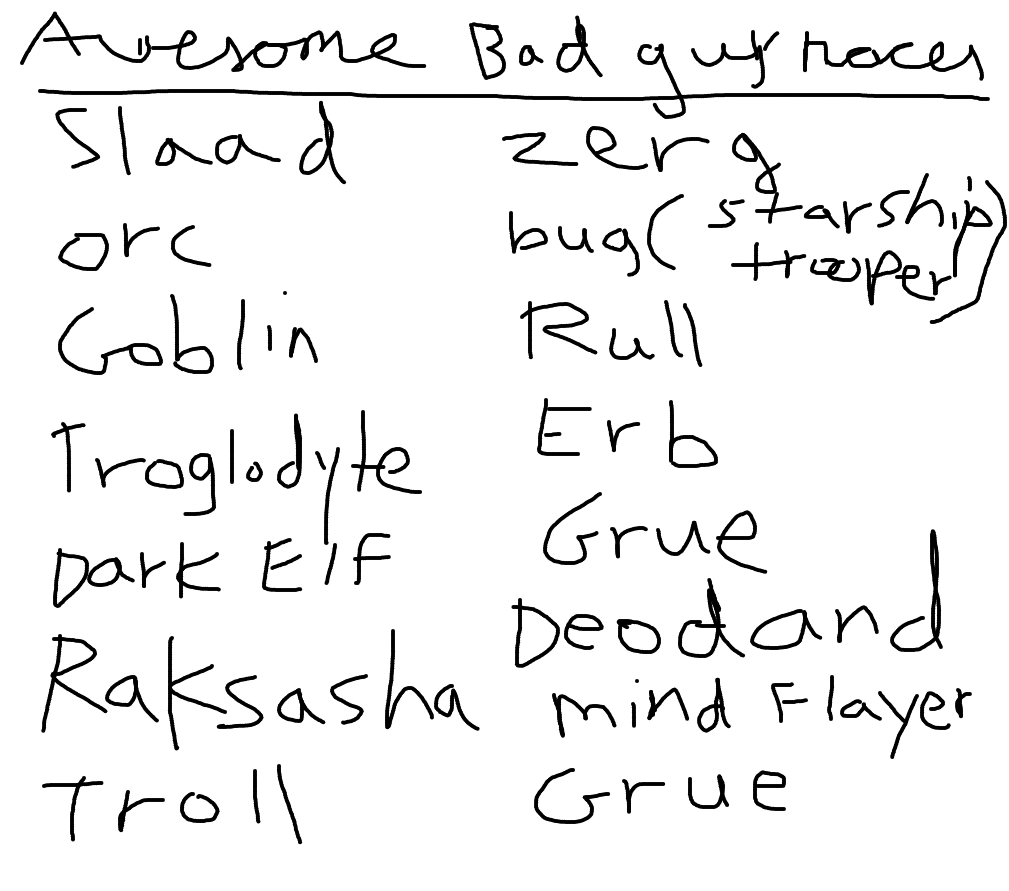 Awesome Bad guy races
Slaad
orc
Goblin
Troglodyte
Dark Elf
Raksasha
Troll
zerg
bug (starship
trooper)
Rull
Erb
Grue
Deodand
mind Flayer
Grue